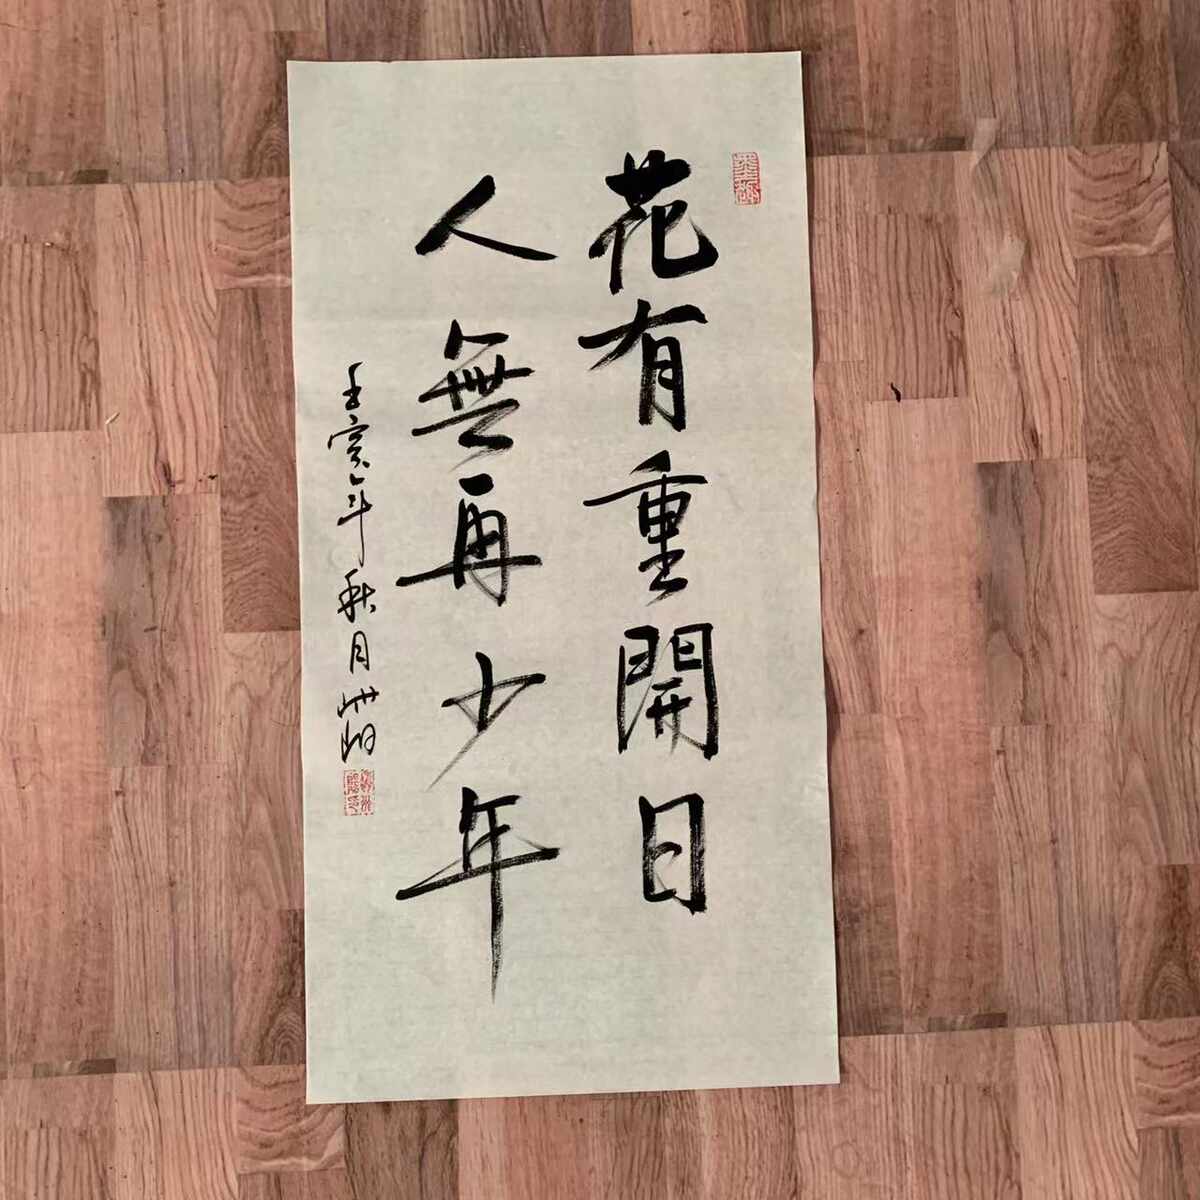 花有重開日
人無再少年
壬寅年秋月